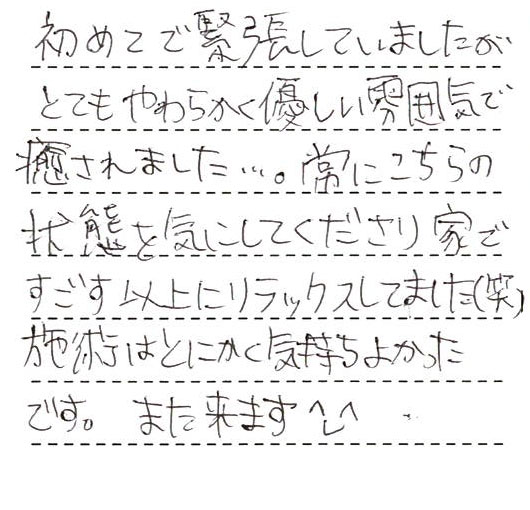 初めてで緊張していましたが
とてもやわらかく優しい雰囲気で
癒されました…。常にこちらの
状態を気にしてくださり家で
すごす以上にリラックスしてました(笑)
施術はとにかく気持ちよかった
です。また来ます^_^